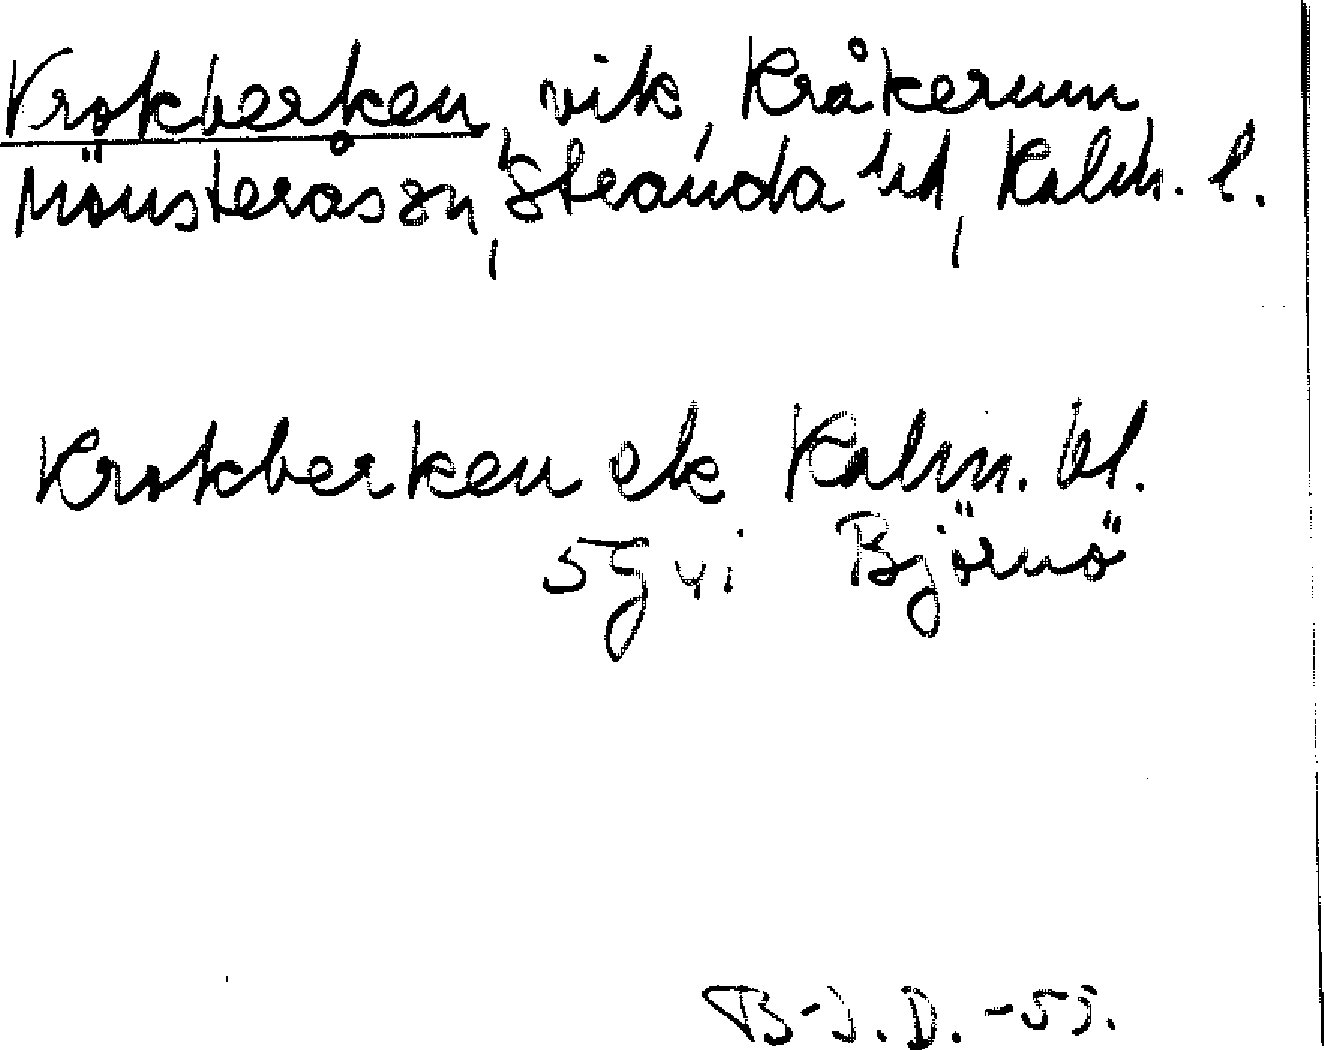 Krokberken, vik, Kråkerum
Mönsterås sn, Stranda hd, Kalm. l.
Krokberken ek Kalm. bl.
5g vi Björnö
B-J. D. -55.